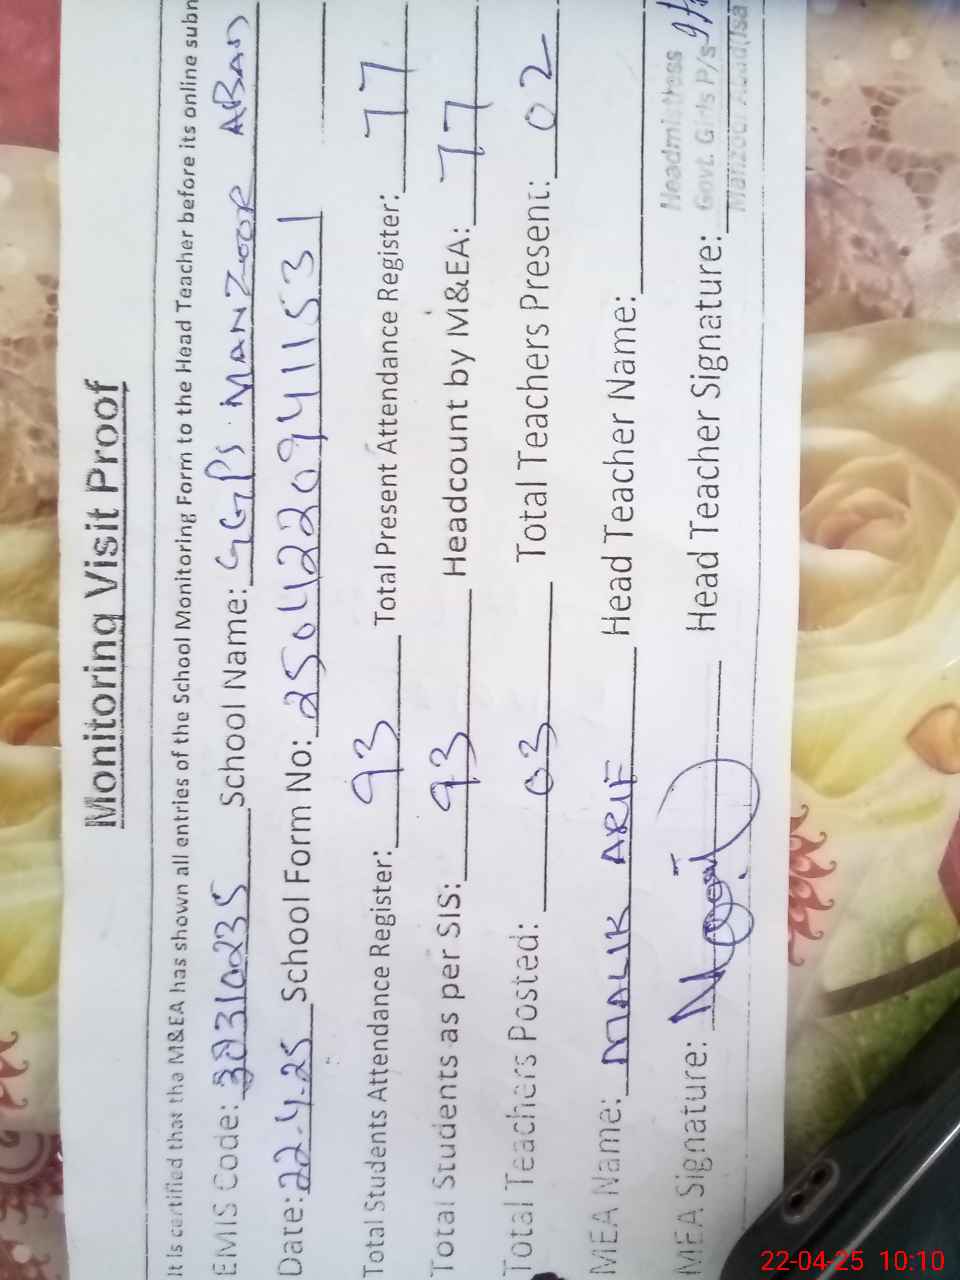 Monitoring Visit Proof
It is certified that the M&EA has shown all entries of the School Monitoring Form to the Head Teacher before its online subn
EMIS Code: School Name: GGPS MANZOOR ABAD
Date: 22-4-25 School Form No: 25042209411531
Total Students Attendance Register: 93 Total Present Attendance Register: 77
Total Students as per SIS: 93 Headcount by M&EA: 77
Total Teachers Posted: 03 Total Teachers Present: 02
MEA Name: MALIK ARIF Head Teacher Name:
MEA Signature: Head Teacher Signature:
Headmistress
Govt. Girls P/s
Manzoor Abad
22-04-25 10:10